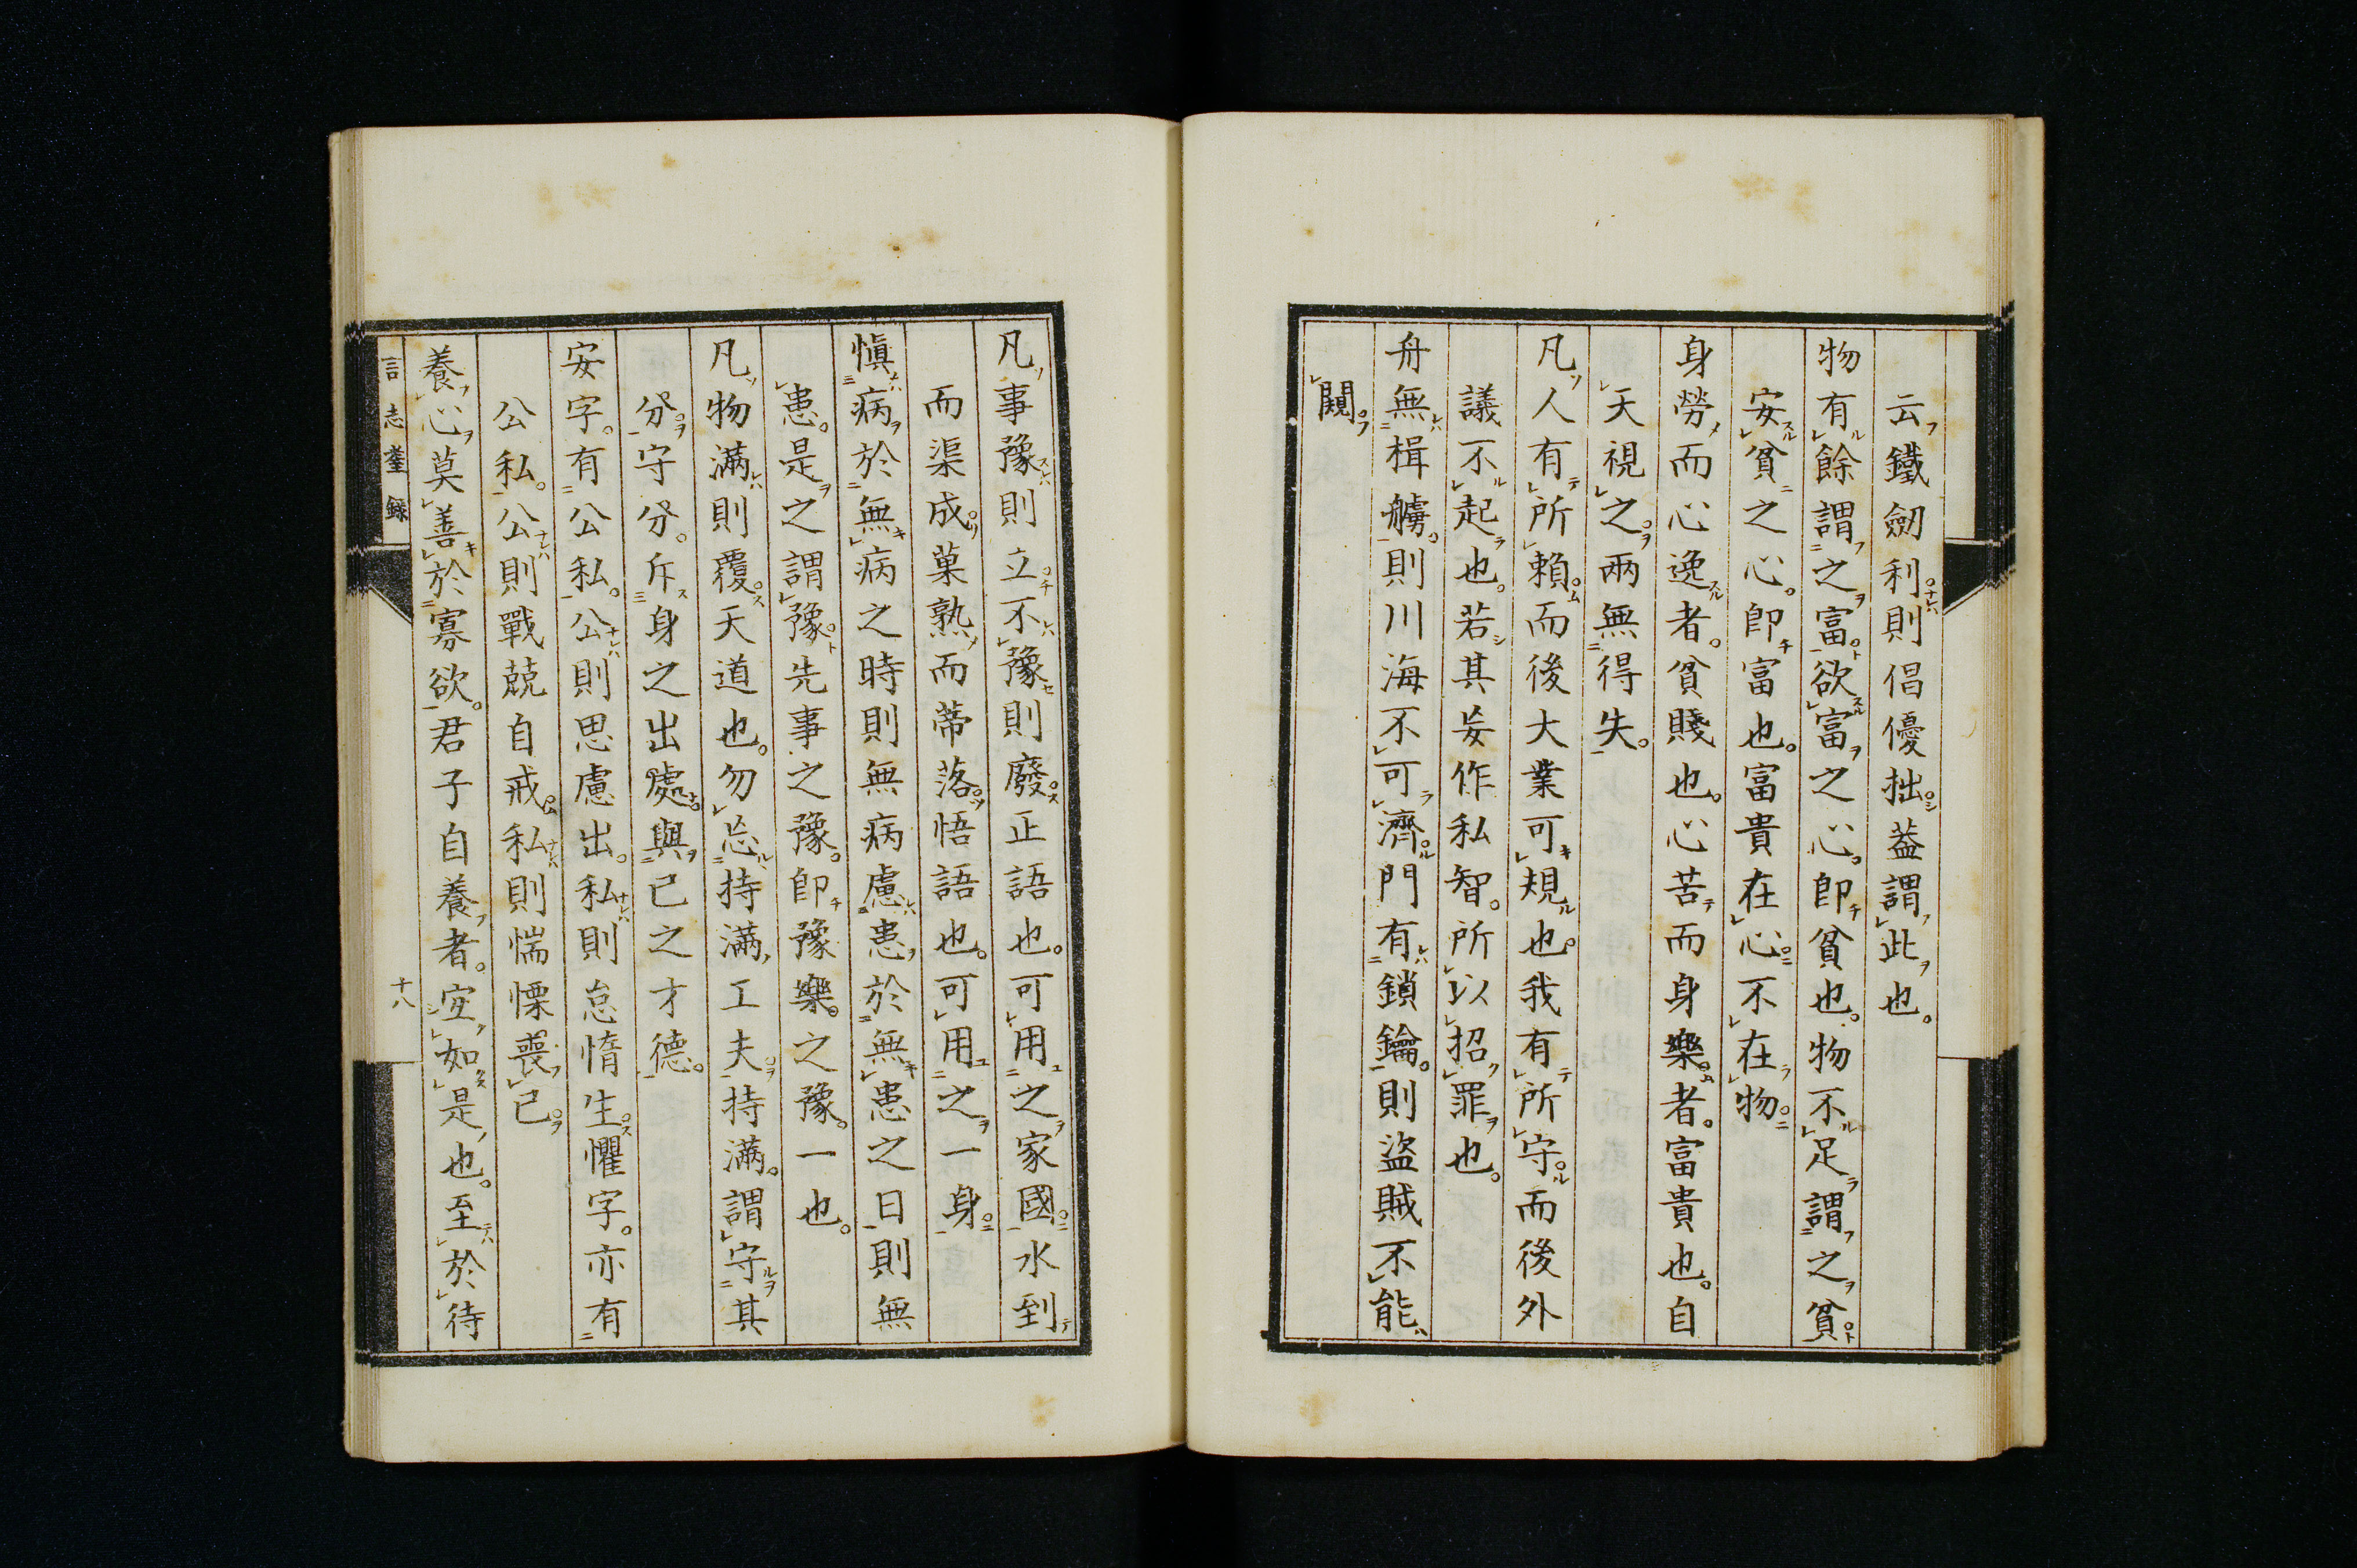 云鐵劒利則倡優拙蓋謂此也。
物有餘謂之富欲富之心。卽貧也。物不足謂之貧
安貧之心。卽富也。富貴在心不在物
身勞而心逸者。貧賤也。心苦而身樂者。富貴也。自
天視之兩無得失。
凡人有所賴而後大業可規也。我有所守而後外
議不起也。若其妄作私智。所以招罪也。
舟無楫艣。則川海不可濟門有鎖鑰。則盜賊不能
闚。
凡事豫則立不豫則廢正語也。可用之家國水到
而渠成菓熟而蒂落悟語也。可用之一身
愼病於無病之時則無病慮患於無患之日則無
患。是之謂豫先事之豫。卽豫樂。之豫。一也。
凡物滿則覆天道也。勿忘持滿工夫持滿。謂守其
分守分。斥身之出處與己之才德。
安字。有公私。公則思慮出。私則怠惰生懼字。亦有
公私。公則戰兢自戒私則惴慄喪己。
養心莫善於寡欲。君子自養者。宜如是也。至於待
言志耋錄
十八